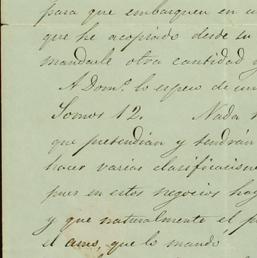 para que embarquen en u
que he acopiado desde su
mandarle otra cantidad y
A Dom.º lo espero de un
Somos 12. Nada
que pretendian y tendrán
hacer varias clasificacione
pues en estos negocios hay
y que naturalmente el p
el amo, que lo mando